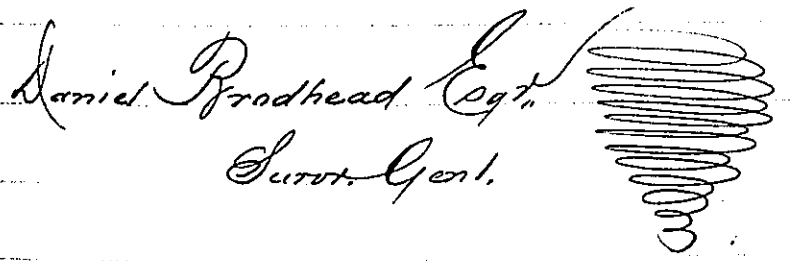 Daniel Brodhead Esqr.
Survr. Genl.